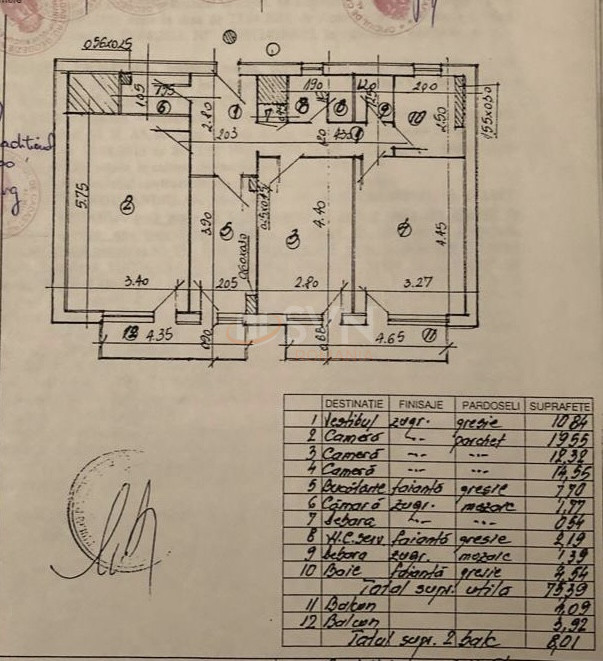 056x0.15
1.95
1.05
6
2.80
1
203
7
190
8
8
120
9
200
10
2.50
155x0.30
1
5.75
2
3.90
5
060x0.30
045x0.15
4.40
3
4
4.45
3.40
205
2.80
3.27
12
4.35
0.90
0.88
4.65
11
SVN
ROMANIA
DESTINAȚIE FINISAJE PARDOSELI SUPRAFEȚE
1 Vestibul zugr. gresie 10.84
2 Cameră -"- parchet 19.55
3 Cameră -"- -"- 12.32
4 Cameră -"- -"- 14.55
5 Bucătarie faianță gresie 7.70
6 Cămară zugr. mozaic 1.77
7 Debara -"- -"- 0.54
8 W.C. serv. faianță gresie 2.19
9 Debara zugr. mozaic 1.39
10 Baie faianță gresie 4.54
Total supr. utila 75.39
11 Balcon 4.09
12 Balcon 3.92
Total supr. 2 balc 8.01